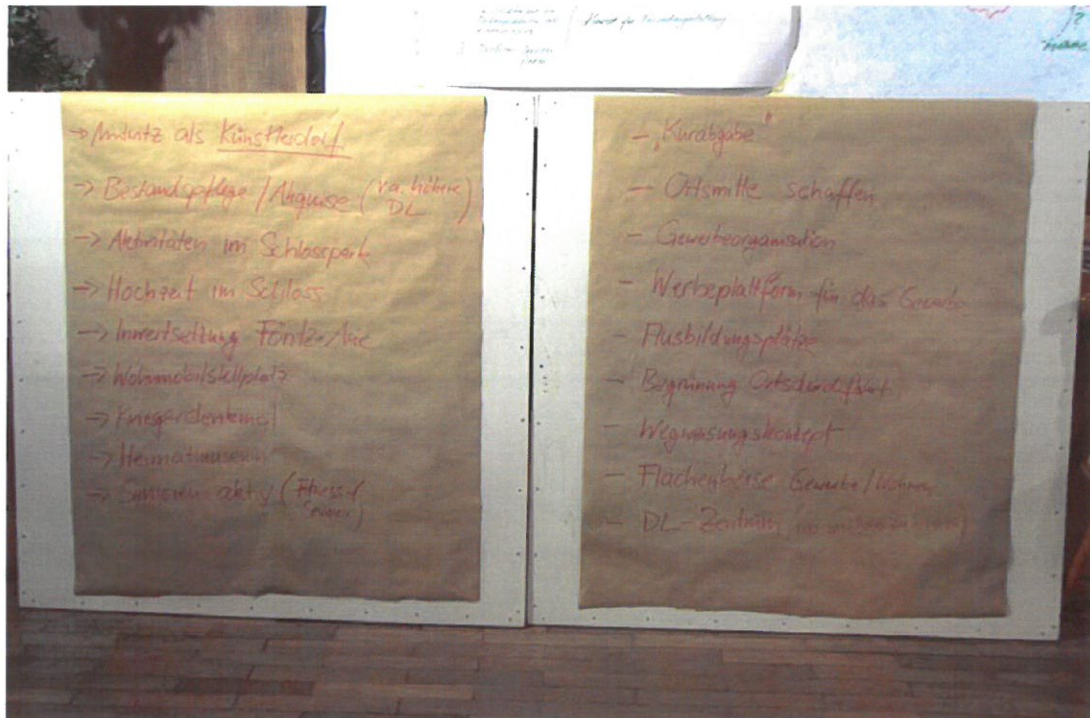 Konzept für
→ als Künstlerdorf
→ Bestandspflege / Akquise (v.a. höhere DL)
→ Aktivitäten im Schlosspark
→ Hochzeit im Schloss
→ Inwertsetzung Föritz-Aue
→ Wohnmobilstellplatz
→ Kriegerdenkmal
→ Heimatmuseum
→ Senioren aktiv (Fitness f. Senioren)
– „Kurabgabe“
– Ortsmitte schaffen
– Gewerbeorganisation
– Werbeplattform für das Gewerbe
– Ausbildungsplätze
– Begrünung Ortsdurchfahrt
– Wegweisungskonzept
– Flächenbörse Gewerbe/Wohnen
– DL-Zentrum